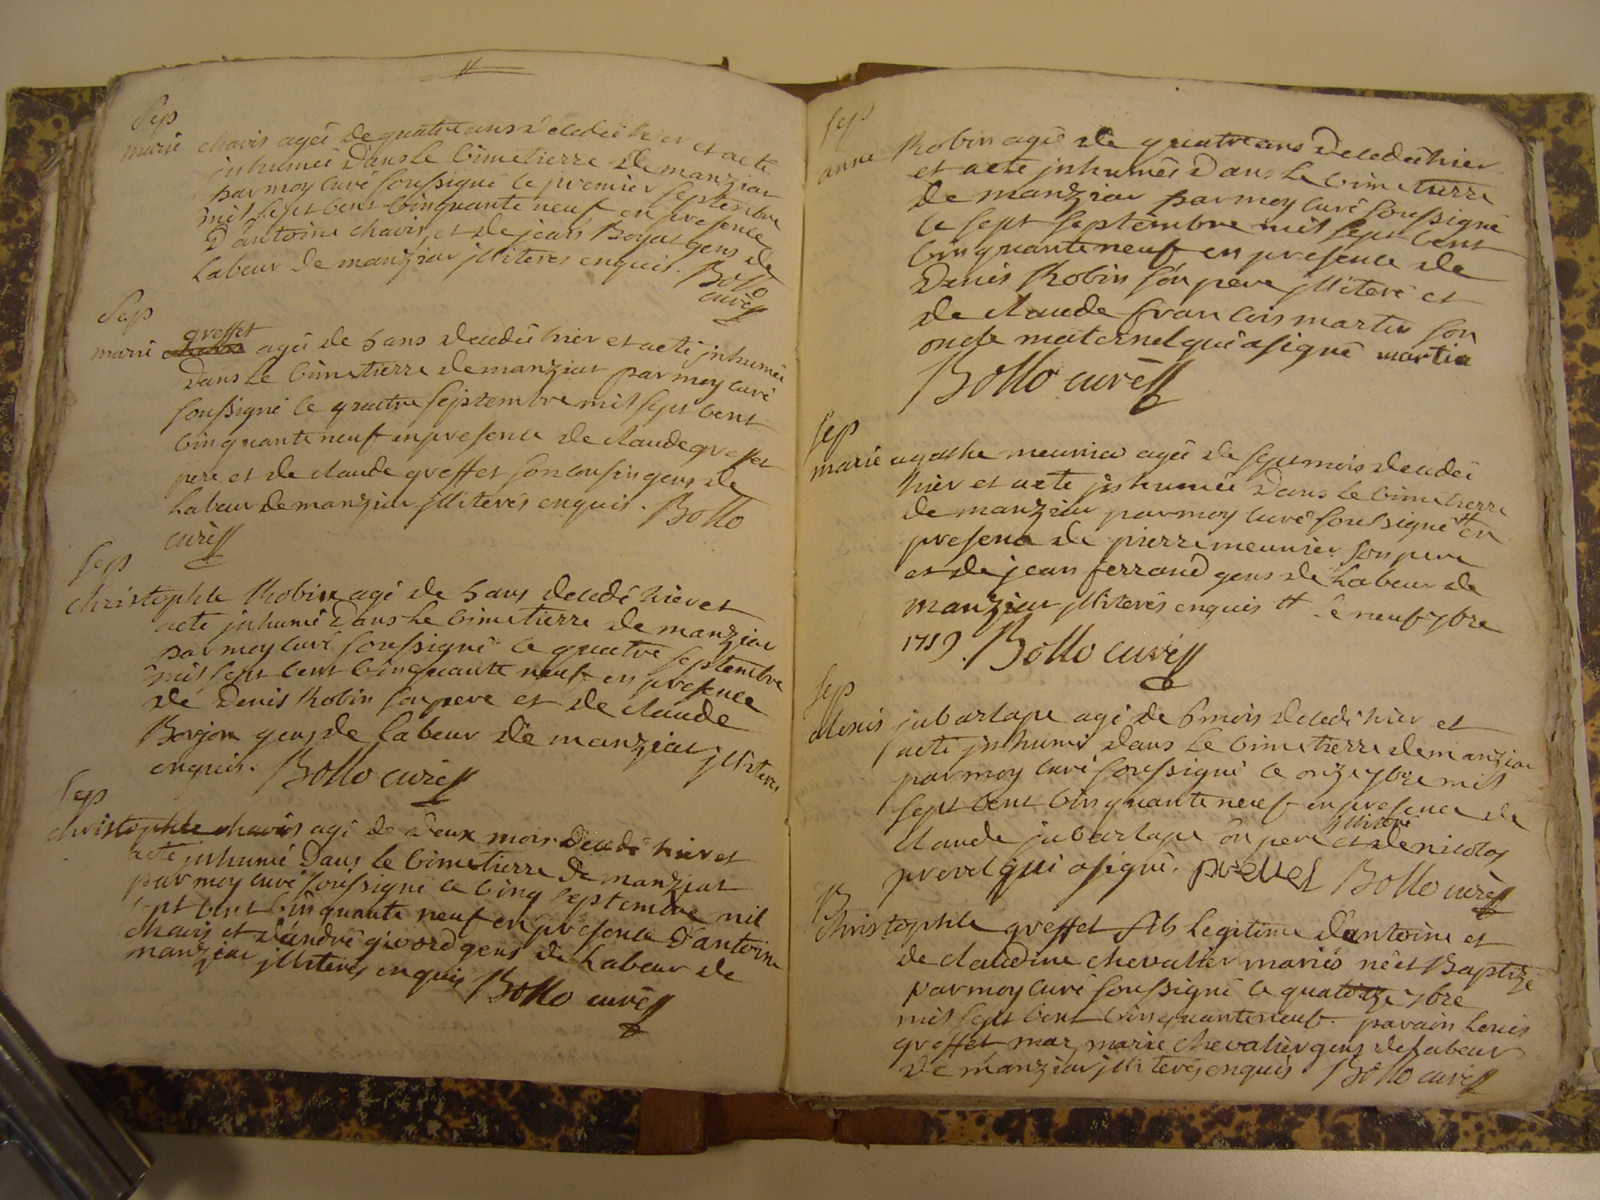 Sep
marie chavis ageé de quatre ans decedeé hier et acté
inhumeé dans le Cimetierre de manziat
par moy curé soussigné le premier septembre
mil sept cent cinquante neuf en presence
d'antoine chavis et de jean Boyat gens de
labeur de manziat jlliterés enquis. Bollo
curé
Sep
greffet
marie ageé de 6 ans decedeé hier et acté inhumeé
dans le Cimetierre de manziat par moy curé
soussigné le quatre septembre mil sept cent
cinquante neuf en presence de claude greffet
pere et de claude greffet son cousin gens de
labeur de manziat jlliterés enquis. Bollo
curé
Sep
christophle Robin agé de 6 ans decedé hier et
acté inhumé dans le Cimetierre de manziat
par moy curé soussigné le quatre septembre
mil sept cent cinquante neuf en presence
de Denis Robin son pere et de claude
Borjon gens de labeur de manziat jlliterés
enquis. Bollo curé
Sep
christophle chavis agé de deux mois decedé hier et
acté inhumé dans le Cimetierre de manziat
par moy curé soussigné le cinq septembre mil
sept cent cinquante neuf en presence d'antoine
chavis et d'andré givord gens de labeur de
manziat jlliterés enquis Bollo curé
Sep
anne Robin ageé de quatre ans decedeé hier
et acté inhumeé dans le Cimetierre
de manziat par moy curé soussigné
le sept septembre mil sept cent
cinquante neuf en presence de
Denis Robin son pere jlliteré et
de claude francois martin son
oncle maternel qui a signé martin
Bollo curé
Sep
marie agathe meunier ageé de sept mois decedeé
hier et acté inhumeé dans le Cimetierre
de manziat par moy curé soussigné # en
presence de pierre meunier son pere
et de jean ferrand gens de labeur de
manziat jlliterés enquis # le neuf 7bre
1759. Bollo curé
Sep
alexis jubarlape agé de 6 mois decedé hier et
acté inhumé dans le Cimetierre de manziat
par moy curé soussigné le onze 7bre mil
sept cent cinquante neuf en presence de
jlliteré
claude jubarlape son pere et de nicolas
prevel qui a signé. prevel Bollo curé
B
Christophle greffet fils legitime d'antoine et
de claudine chevalier mariés né et Baptizé
par moy curé soussigné le quatorze 7bre
mil sept cent cinquante neuf. parain Louis
greffet mar. marie chevalier gens de labeur
de manziat jlliterés enquis Bollo curé